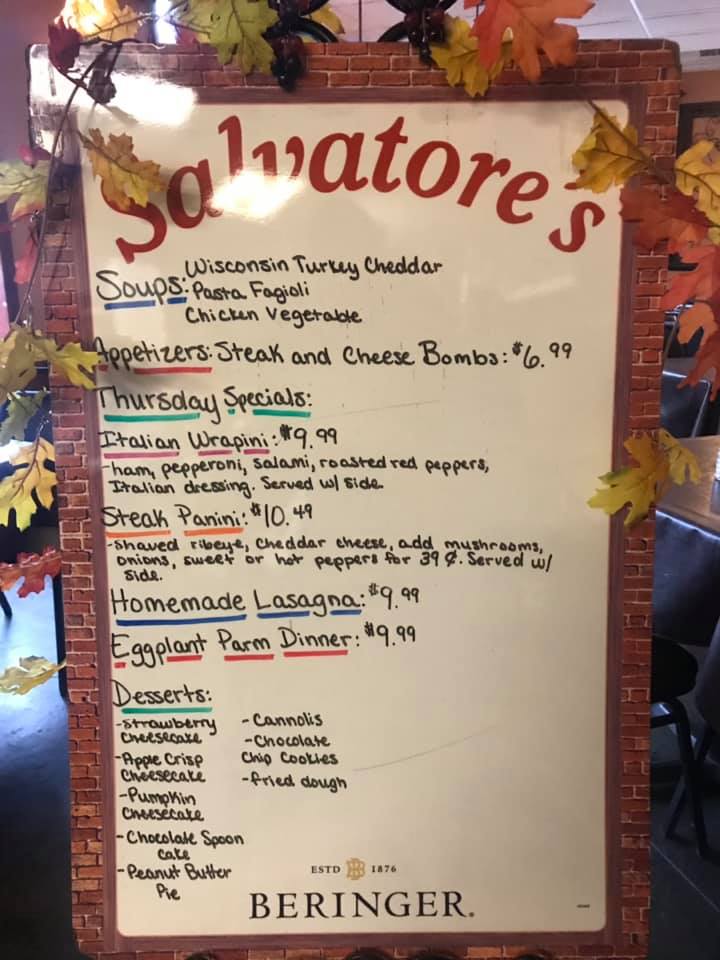 Salvatore's
Soups: Wisconsin Turkey Cheddar
Pasta Fagioli
Chicken Vegetable
Appetizers: Steak and Cheese Bombs: $6.99
Thursday Specials:
Italian Wrapini: $9.99
-ham, pepperoni, salami, roasted red peppers,
Italian dressing. Served w/ side.
Steak Panini: $10.49
-shaved ribeye, cheddar cheese, add mushrooms,
onions, sweet or hot peppers for 39¢. Served w/
side.
Homemade Lasagna: $9.99
Eggplant Parm Dinner: $9.99
Desserts:
-Strawberry
Cheesecake
-Apple Crisp
Cheesecake
-Pumpkin
Cheesecake
-Chocolate Spoon
Cake
-Peanut Butter
Pie
-Cannolis
-Chocolate
Chip Cookies
-fried dough
ESTD B 1876
BERINGER.